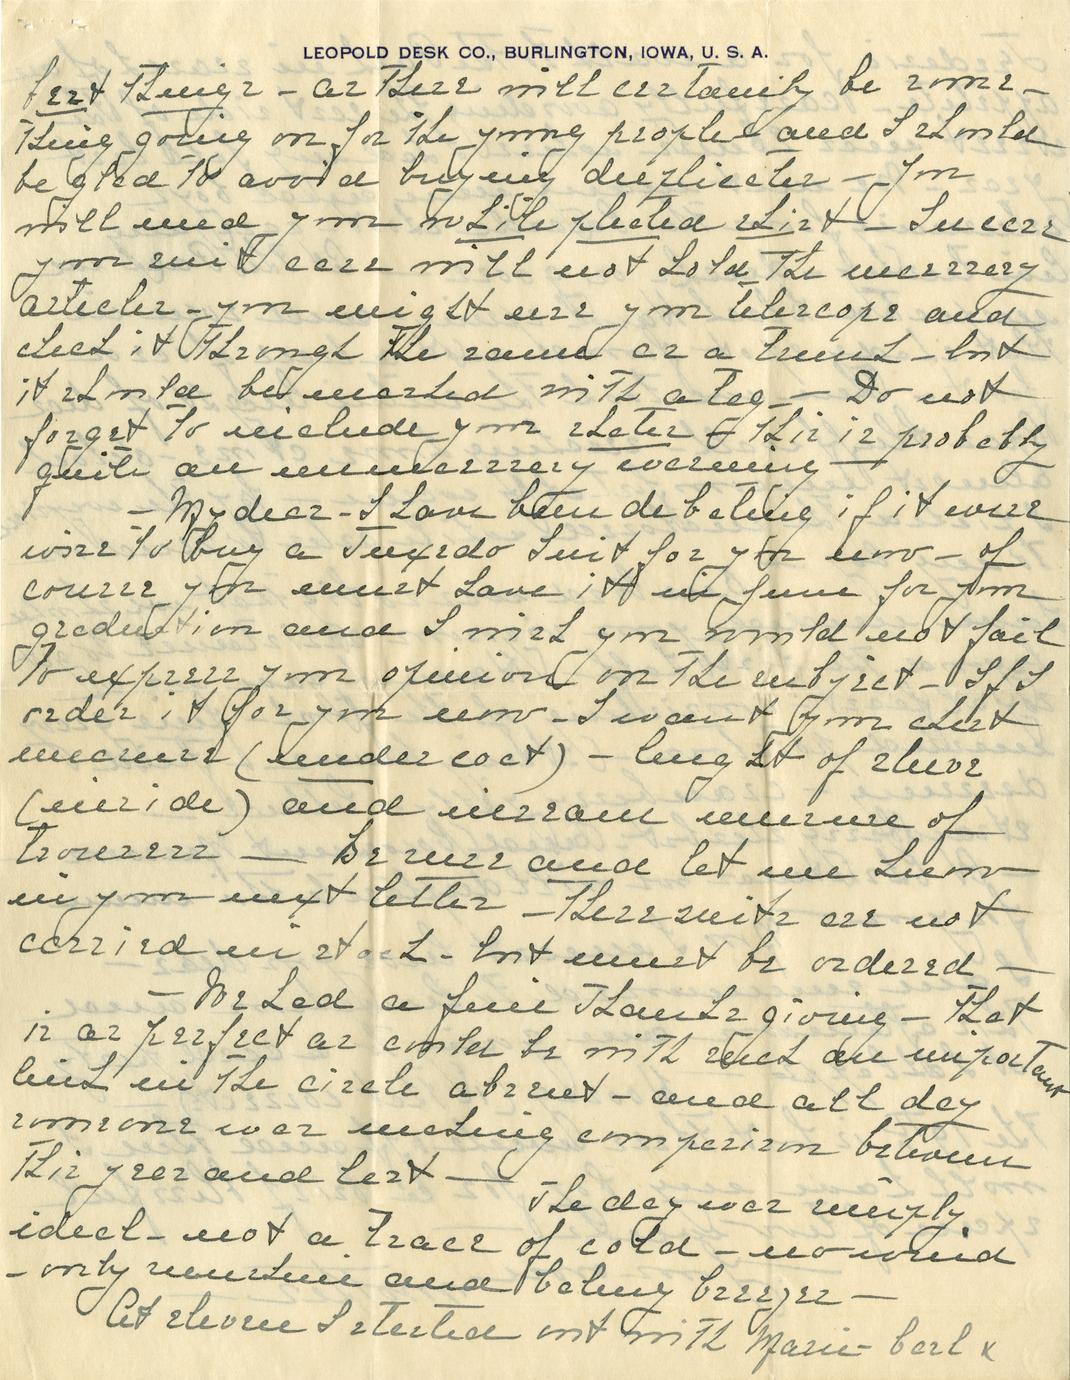 LEOPOLD DESK CO., BURLINGTON, IOWA, U. S. A.
best things - as there will certainly be some-
thing going on for the young people - and I should
be glad to avoid buying duplicates - You
will need your white pleated shirt - In case
your suit case will not hold the necessary
articles - you might use your telescope and
check it through the same as a trunk - but
it should be marked with a tag - Do not
forget to include your skates - this is probably
quite an unnecessary warning -
- My dear - I have been debating if it were
wise to buy a Tuxedo Suit for you now - of
course you must have it in June for your
graduation and I wish you would not fail
to express your opinion on the subject - If I
order it for you now - I want your chest
measure (under coat) - length of sleeve
(inside) and inseam measure of
trousers - Be sure and let me know
in your next letter - These suits are not
carried in stock - but must be ordered -
- We had a fine Thanksgiving - that
is as perfect as could be with such an important
link in the circle absent - and all day
someone was making comparison between
this year and last - The day was simply
ideal - not a trace of cold - no wind
- only sunshine and balmy breezes -
At eleven I started out with Marie - Carl &